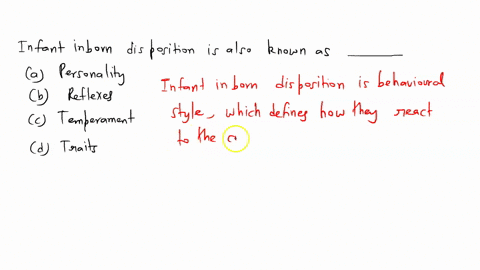 Infant inborn disposition is also known as ______
(a) Personality
(b) Reflexes
(c) Temperament
(d) Traits
Infant inborn disposition is behavioural
style, which defines how they react
to the